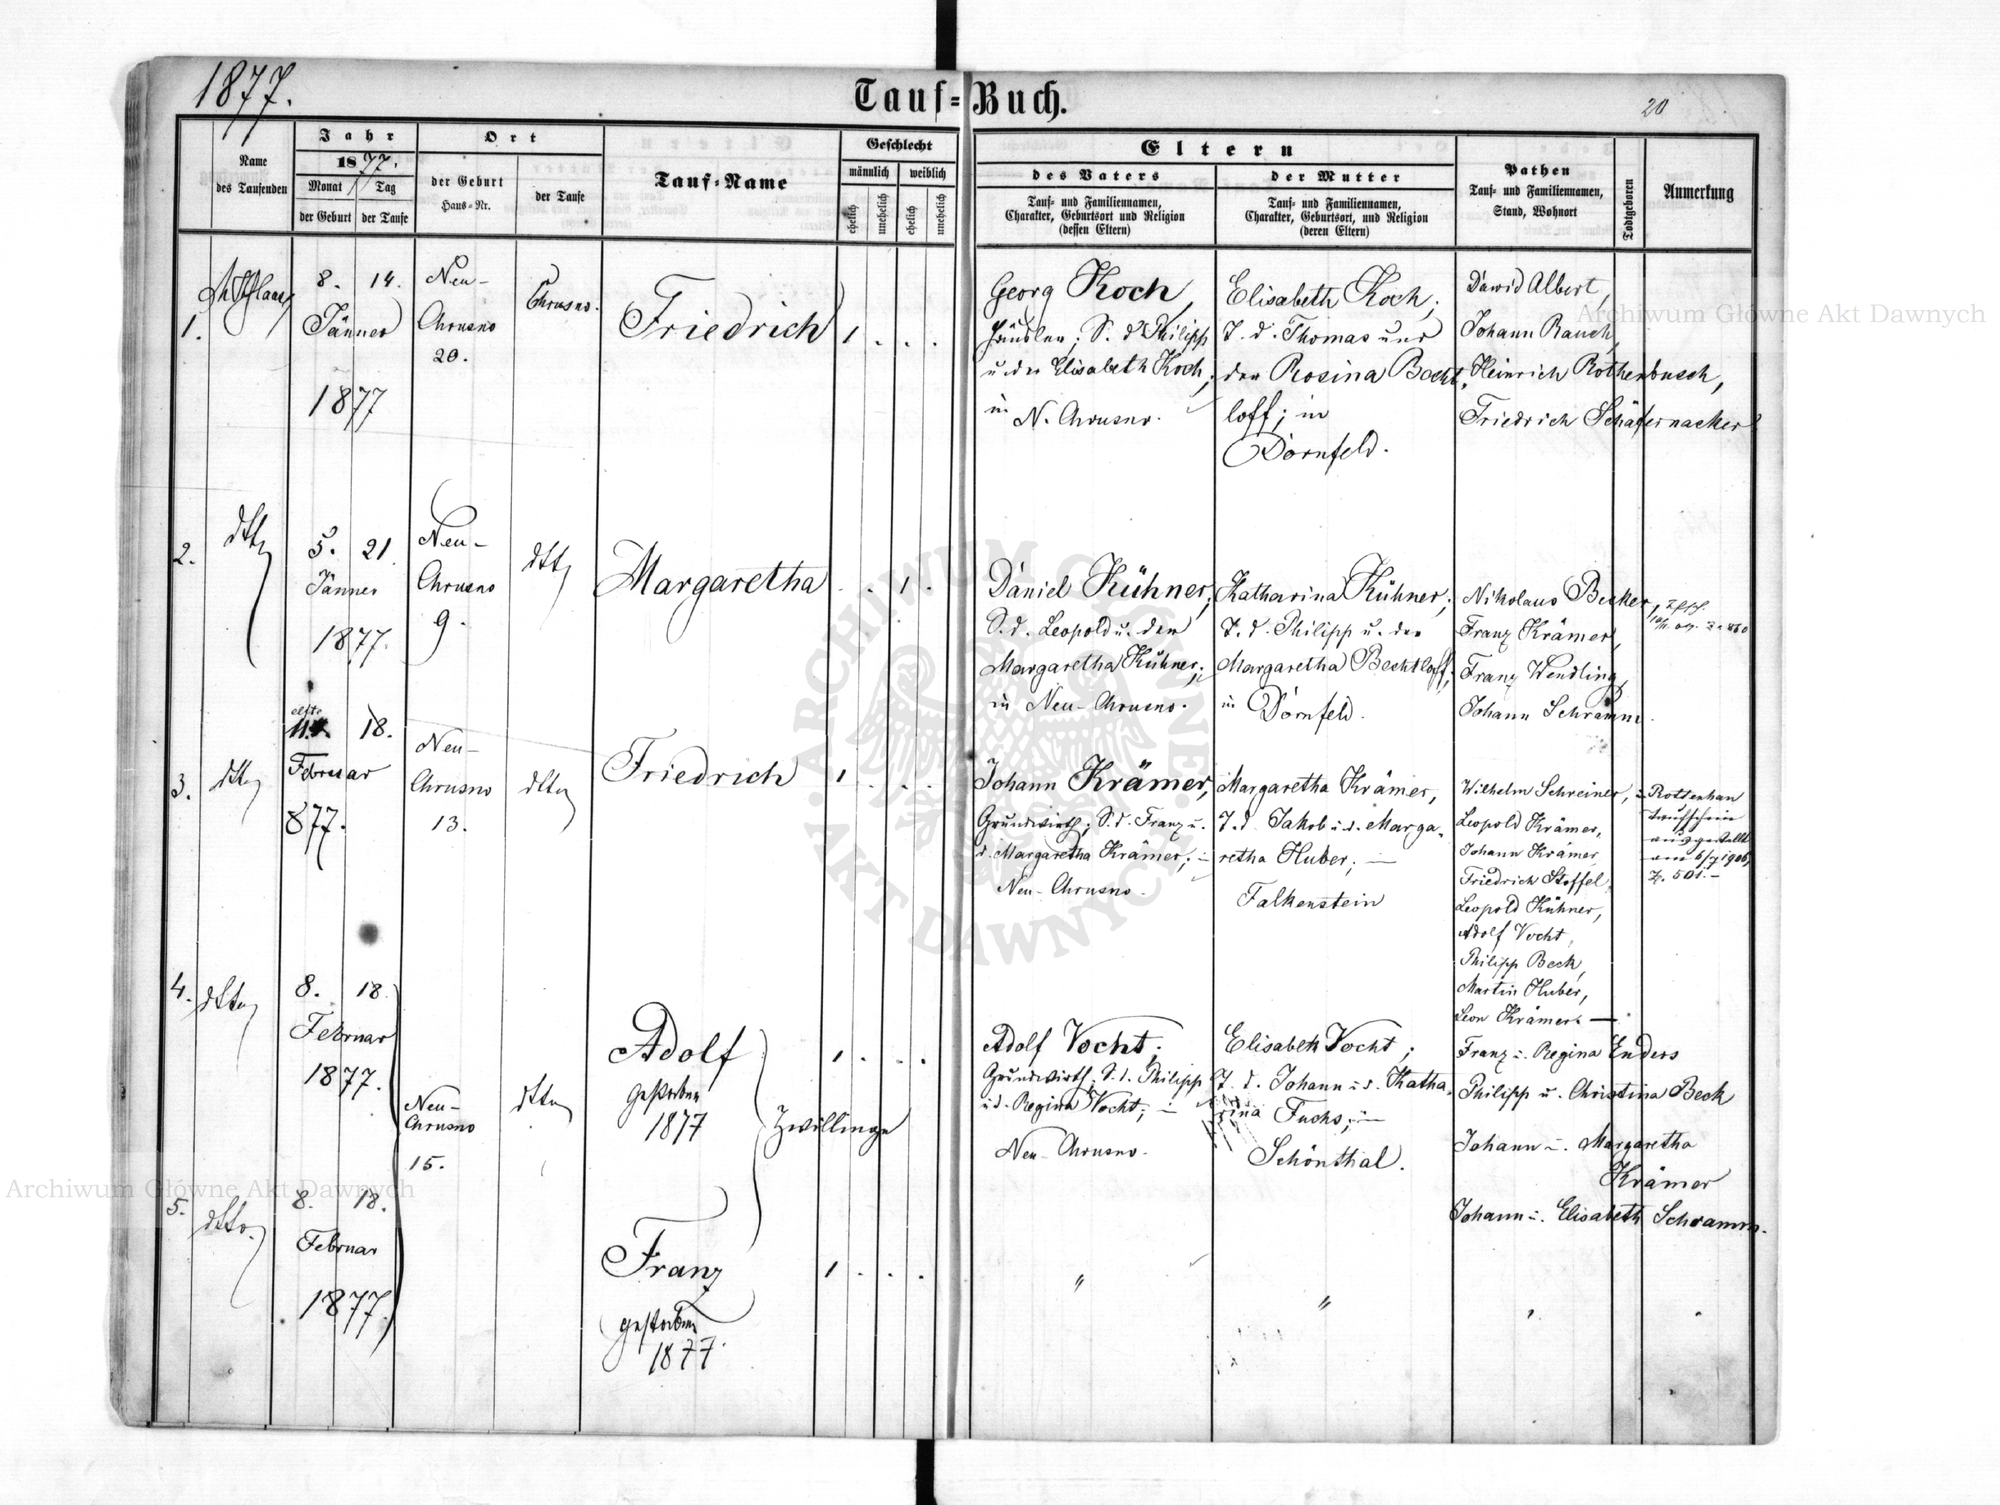 1877.
Tauf-Buch.
20
Name
des Taufenden
Jahr
1877.
Monat Tag
der Geburt der Taufe
Ort
der Geburt
Haus-Nr.
der Taufe
Tauf-Name
Geschlecht
männlich weiblich
ehelich unehelich ehelich unehelich
Eltern
des Vaters
Tauf- und Familiennamen,
Charakter, Geburtsort und Religion
(dessen Eltern)
der Mutter
Tauf- und Familiennamen,
Charakter, Geburtsort, und Religion
(deren Eltern)
Pathen
Tauf- und Familiennamen,
Stand, Wohnort
Todtgeboren
Anmerkung
1.
8. 14.
Jänner
1877
Neu-
Chrusno
20.
Chrusno.
Friedrich
1 . . .
Georg Koch,
Häusler; S. d Philipp
u. der Elisabeth Koch;
in N. Chrusno.
Elisabeth Koch;
T. d. Thomas und
der Rosina Becht-
loff; in
Dornfeld.
David Albert,
Johann Rauch,
Heinrich Rothenbusch,
Friedrich Schäfernacker
2.
dtto
5. 21.
Jänner
1877.
Neu-
Chrusno
9.
dtto
Margaretha
. . 1 .
Daniel Kühner;
S. d. Leopold u. der
Margaretha Kühner;
in Neu-Chrusno.
Katharina Kühner;
T. d. Philipp u. der
Margaretha Bechtloff;
in Dornfeld.
Nikolaus Becker,
Franz Krämer,
Franz Wendling,
Johann Schramm.
3.
dtto
elfte
11. 18.
Februar
877.
Neu-
Chrusno
13.
dtto
Friedrich
1 . . .
Johann Krämer,
Grundwirth; S. d. Franz u.
d. Margaretha Krämer; in
Neu-Chrusno.
Margaretha Krämer,
T. d. Jakob u. d. Marga-
retha Huber; in
Falkenstein
Wilhelm Schreiner, in Rottenhan
Leopold Krämer,
Johann Krämer
Friedrich Stoffel,
Leopold Kühner,
Adolf Vocht,
Philipp Beck,
Martin Huber,
Leon Krämer.
Taufschein
ausgestellt
am 6/7 1906,
Z. 501.
4.
dtto
8. 18.
Februar
1877.
Neu-
Chrusno
15.
dtto
Adolf
gestorben
1877
Zwillinge
1 . . .
Adolf Vocht;
Grundwirth; S. d. Philipp
u. d. Regina Vocht; in
Neu-Chrusno.
Elisabeth Vocht;
T. d. Johann u. d. Katha-
rina Fuchs; in
Schönthal.
Franz u. Regina Enders
Philipp u. Christina Beck
Johann u. Margaretha
Krämer
Johann u. Elisabeth Schramm.
5.
dtto.
8. 18.
Februar
1877.
Franz
gestorben
1877.
1 . . .
"
"
Archiwum Główne Akt Dawnych
Archiwum Główne Akt Dawnych
ARCHIWUM GŁÓWNE
AKT DAWNYCH